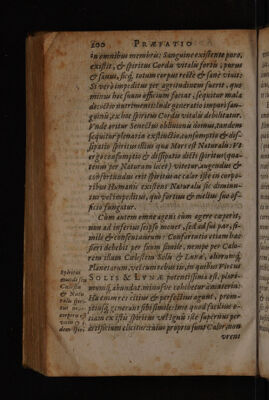 100 PRÆFATIO
in omnibus membris: Sanguine existente puro,
existit, & spiritus Cordis vitalis fortis, purus
& sanus, sicq; totum corpus recte & sane vivit:
Si vero impeditus per agritudinem fuerit, quo
minus hoc suum officium faciat, sequitur mala
decoctio nutrimenti: Inde generatio impuri san-
guinis, ex hoc spiritus Cordis vitalis debilitatur.
Unde oritur Senectus oblivionis domus, tandem
sequitur plenaria extinctio, consumptio & dis-
sipatio spiritus illius qua Mors est Naturalis: Ut
ergo consumptio & dissipatio dicti spiritus (quan-
tum per Naturam licet) vitetur, augendus &
confortandus erit spiritus ac calor iste in corpo-
ribus Humanis existens Naturalis sic diminu-
tus vel impeditus, quo fortius & melius suo of-
ficio fungatur.
Cum autem omne agens cum agere cœperit,
non ad inferius seipso movet, sed ad sui par, si-
mile & consentaneum: Confortatio etiam hac
fieri debebit per suum simile, nempe per Calo-
rem illum Cœlestem Solis & Lunæ, aliorumq;
Planetarum, vel cum rebus iis, in quibus Virtus
SOLIS & LUNÆ potentissima est, pluri-
mumq; abundat, minusve cohibetur à materia:
Hæ enim res citius & perfectius agunt, prom-
ptiusq; generant sibi simile: Imo quod facilius e-
tiam ex istis spiritus vel Ignis iste superius per
artificium elicitur: unius proprium est Calor, non
urens
Spiritus
mundi seu
Cœlestis
& Natu-
ralis spiri-
tus
corporis &